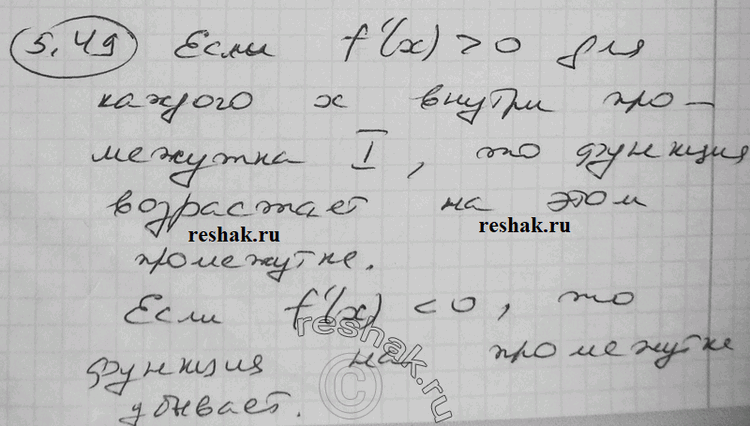 5.49 Если f'(x) > 0 для
каждого x внутри про-
межутка I, то функция
возрастает на этом
reshak.ru
reshak.ru
промежутке.
Если f'(x) < 0, то
reshak.ru
функция на промежутке
©
убывает.